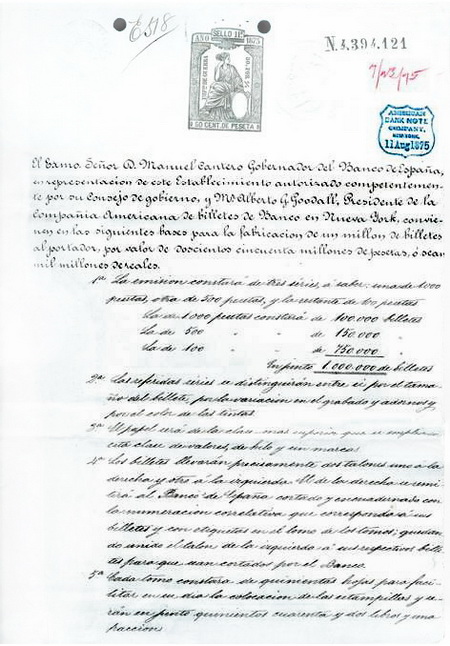 E518
SELLO 11º
AÑO 1875
50 CENT. DE PESETA
N.4,394,121
7/23/75
AMERICAN
BANK NOTE
COMPANY,
NEW YORK.
11 Aug 1875
El Exmo. Señor D. Manuel Cantero Gobernador del Banco de España,
en representacion de este Establecimiento autorizado competentemen-
te por su Consejo de gobierno, y Mr. Alberto G. Goodall, Presidente de la
Compañia Americana de billetes de Banco en Nueva York, convie-
nen en las siguientes bases para la fabricacion de un millon de billetes
al portador, por valor de doscientos cincuenta millones de pesetas, ó sean
mil millones de reales.
1ª La emision constará de tres séries, á saber: una de 1000
pesetas, otra de 500 pesetas, y la restante de 100 pesetas
La de 1000 pesetas constará de 100.000 billetes
La de 500 " " de 150.000 "
La de 100 " " de 750.000 "
En junto 1.000.000 de billetes
2ª Las referidas séries se distinguirán entre si por el tama-
ño del billete, por la variacion en el grabado y adornos y
por el color de las tintas.
3ª El papel será de la clase mas superior que se emplea en
esta clase de valores, de hilo y sin marca.
4ª Los billetes llevarán precisamente dos talones uno á la
derecha y otro á la izquierda. El de la derecha se remi-
tirá al Banco de España cortado y encuadernado con
la numeracion correlativa que corresponda á sus
billetes y con etiquetas en el lomo de los tomos; quedan-
do unido el talon de la izquierda á sus respectivos bille-
tes para que sean cortados por el Banco.
5ª Cada tomo constará de quinientas hojas para faci-
litar en su dia la colocacion de las estampillas y se-
rán en junto quinientos cuarenta y dos libros y una
fraccion.